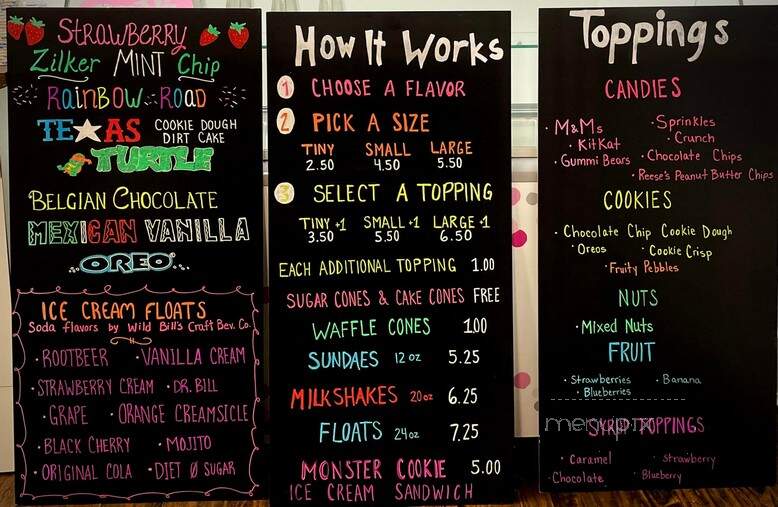 Strawberry
Zilker Mint Chip
Rainbow Road
TEXAS COOKIE DOUGH
DIRT CAKE
TURTLE
BELGIAN CHOCOLATE
MEXICAN VANILLA
OREO
ICE CREAM FLOATS
Soda flavors by Wild Bill's Craft Bev. Co.
· ROOTBEER · VANILLA CREAM
· STRAWBERRY CREAM · DR. BILL
· GRAPE · ORANGE CREAMSICLE
· BLACK CHERRY · MOJITO
· ORIGINAL COLA · DIET Ø SUGAR
How It Works
1 CHOOSE A FLAVOR
2 PICK A SIZE
TINY SMALL LARGE
2.50 4.50 5.50
3 SELECT A TOPPING
TINY +1 SMALL +1 LARGE +1
3.50 5.50 6.50
EACH ADDITIONAL TOPPING 1.00
SUGAR CONES & CAKE CONES FREE
WAFFLE CONES 1.00
SUNDAES 12 oz 5.25
MILKSHAKES 20 oz 6.25
FLOATS 24 oz 7.25
MONSTER COOKIE 5.00
ICE CREAM SANDWICH
Toppings
CANDIES
· M&Ms · Sprinkles
· KitKat · Crunch
· Gummi Bears · Chocolate Chips
· Reese's Peanut Butter Chips
COOKIES
· Chocolate Chip Cookie Dough
· Oreos · Cookie Crisp
· Fruity Pebbles
NUTS
· Mixed Nuts
FRUIT
· Strawberries · Banana
· Blueberries
menupix
SYRUP TOPPINGS
· Caramel · Strawberry
· Chocolate · Blueberry